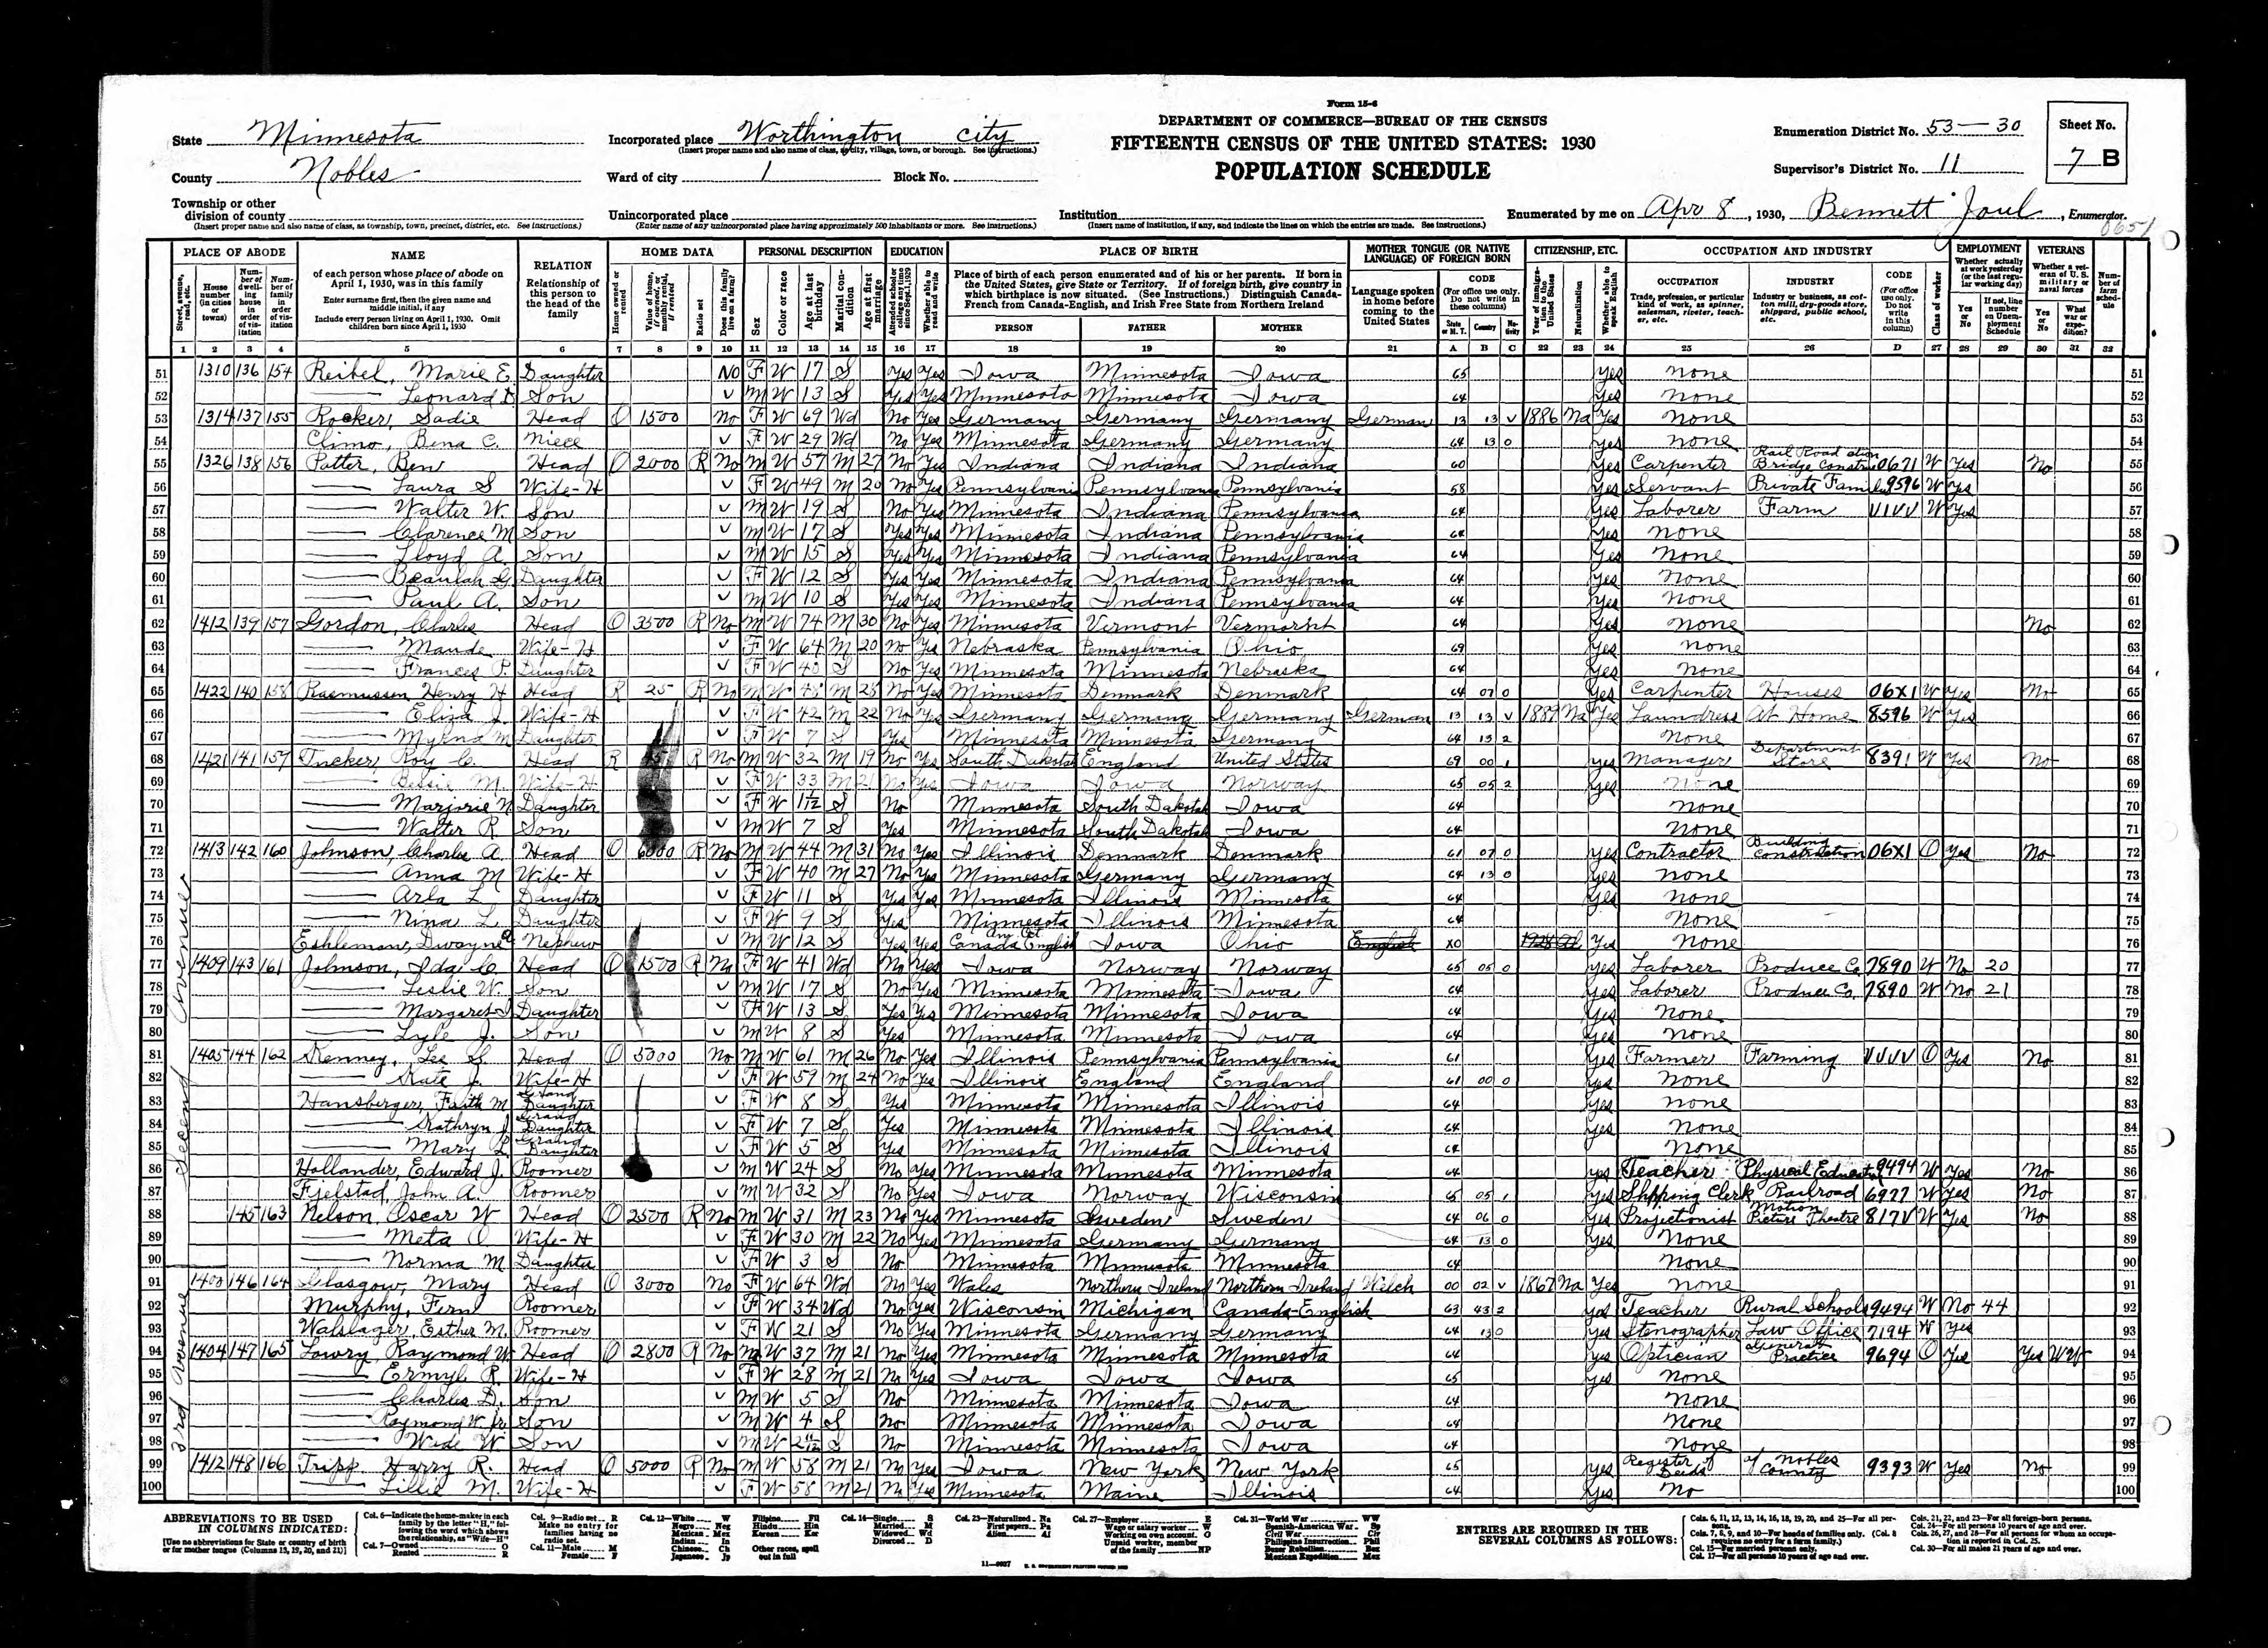 Form 15-6
DEPARTMENT OF COMMERCE—BUREAU OF THE CENSUS
FIFTEENTH CENSUS OF THE UNITED STATES: 1930
POPULATION SCHEDULE
State Minnesota
County Nobles
Township or other division of county
(Insert proper name and also name of class, as township, town, precinct, district, etc. See instructions.)
Incorporated place Worthington city
(Insert proper name and also name of class, as city, village, town, or borough. See instructions.)
Ward of city 1 Block No.
Unincorporated place
(Enter name of any unincorporated place having approximately 500 inhabitants or more. See instructions.)
Institution
(Insert name of institution, if any, and indicate the lines on which the entries are made. See instructions.)
Enumeration District No. 53-30
Supervisor's District No. 11
Sheet No. 7 B
Enumerated by me on Apr 8, 1930, Bennett Joul, Enumerator.
PLACE OF ABODE NAME RELATION HOME DATA PERSONAL DESCRIPTION EDUCATION PLACE OF BIRTH MOTHER TONGUE (OR NATIVE LANGUAGE) OF FOREIGN BORN CITIZENSHIP, ETC. OCCUPATION AND INDUSTRY EMPLOYMENT VETERANS
of each person whose place of abode on April 1, 1930, was in this family
Enter surname first, then the given name and middle initial, if any
Include every person living on April 1, 1930. Omit children born since April 1, 1930
Relationship of this person to the head of the family
Place of birth of each person enumerated and of his or her parents. If born in the United States, give State or Territory. If of foreign birth, give country in which birthplace is now situated. (See Instructions.) Distinguish Canada-French from Canada-English, and Irish Free State from Northern Ireland
PERSON FATHER MOTHER
1 2 3 4 5 6 7 8 9 10 11 12 13 14 15 16 17 18 19 20 21 A B C 22 23 24 25 26 D 27 28 29 30 31 32
51 1310 136 154 Reibel, Marie E. Daughter No F W 17 S Yes Yes Iowa Minnesota Iowa 65 Yes None 51
52 Leonard Son M W 13 S Yes Yes Minnesota Minnesota Iowa 64 Yes None 52
53 1314 137 155 Rocker, Sadie Head O 1500 No F W 69 Wd No Yes Germany Germany Germany German 13 13 V 1886 Na Yes None 53
54 Climo, Bena C. Niece F W 29 Wd No Yes Minnesota Germany Germany 64 13 0 Yes None 54
55 1326 138 156 Potter, Ben Head O 2000 R No M W 57 M 27 No Yes Indiana Indiana Indiana 60 Yes Carpenter Rail Road Bridge Construction 0671 W Yes No 55
56 Laura S Wife-H F W 49 M 20 No Yes Pennsylvania Pennsylvania Pennsylvania 58 Yes Servant Private Family 9596 W Yes 56
57 Walter W. Son M W 19 S No Yes Minnesota Indiana Pennsylvania 64 Yes Laborer Farm VIVV W Yes 57
58 Clarence M Son M W 17 S Yes Yes Minnesota Indiana Pennsylvania 64 Yes None 58
59 Lloyd A. Son M W 15 S Yes Yes Minnesota Indiana Pennsylvania 64 Yes None 59
60 Beaulah G Daughter F W 12 S Yes Yes Minnesota Indiana Pennsylvania 64 Yes None 60
61 Paul A. Son M W 10 S Yes Yes Minnesota Indiana Pennsylvania 64 Yes None 61
62 1412 139 157 Gordon, Charles Head O 3500 R No M W 74 M 30 No Yes Minnesota Vermont Vermont 64 Yes None No 62
63 Maude Wife-H F W 64 M 20 No Yes Nebraska Pennsylvania Ohio 69 Yes None 63
64 Frances P. Daughter F W 40 S No Yes Minnesota Minnesota Nebraska 64 Yes None 64
65 1422 140 158 Rasmussen Henry H Head R 25 R No M W 48 M 28 No Yes Minnesota Denmark Denmark 64 07 0 Yes Carpenter Houses 06X1 W Yes No 65
66 Eliza J. Wife-H F W 42 M 22 No Yes Germany Germany Germany German 13 13 V 1889 Na Yes Laundress At Home 8596 W Yes 66
67 Myrna M Daughter F W 7 S Yes Minnesota Minnesota Germany 64 13 2 None 67
68 1421 141 159 Tucker, Roy C. Head R R No M W 32 M 19 No Yes South Dakota England United States 69 00 1 Yes Manager Department Store 8391 W Yes No 68
69 Bessie M. Wife-H F W 33 M 21 No Yes Iowa Iowa Norway 65 05 2 Yes None 69
70 Marjorie N. Daughter F W 1 1/12 S No Minnesota South Dakota Iowa 64 None 70
71 Walter R. Son M W 7 S Yes Minnesota South Dakota Iowa 64 None 71
72 1413 142 160 Johnson, Charles A. Head O 6000 R No M W 44 M 31 No Yes Illinois Denmark Denmark 61 07 0 Yes Contractor Building Construction 06X1 O Yes No 72
73 Anna M Wife-H F W 40 M 27 No Yes Minnesota Germany Germany 64 13 0 Yes None 73
74 Arla L Daughter F W 11 S Yes Yes Minnesota Illinois Minnesota 64 Yes None 74
75 Nina L. Daughter F W 9 S Yes Minnesota Illinois Minnesota 64 None 75
76 Eshleman, Dwayne Nephew M W 12 S Yes Yes Canada English Iowa Ohio English X0 1928 Al Yes None 76
77 1409 143 161 Johnson, Ida C. Head O 1500 R No F W 41 Wd No Yes Iowa Norway Norway 65 05 0 Yes Laborer Produce Co. 7890 W No 20 77
78 Leslie W. Son M W 17 S No Yes Minnesota Minnesota Iowa 64 Yes Laborer Produce Co. 7890 W No 21 78
79 Margaret I Daughter F W 13 S Yes Yes Minnesota Minnesota Iowa 64 Yes None 79
80 Lyle J. Son M W 8 S Yes Minnesota Minnesota Iowa 64 Yes None 80
81 1405 144 162 Kenney, Lee S. Head O 5000 No M W 61 M 26 No Yes Illinois Pennsylvania Pennsylvania 61 Yes Farmer Farming VVVV O Yes No 81
82 Kate J. Wife-H F W 59 M 24 No Yes Illinois England England 61 00 0 Yes None 82
83 Hansberger, Faith M Grand Daughter F W 8 S Yes Minnesota Minnesota Illinois 64 Yes None 83
84 Kathryn J Grand Daughter F W 7 S Yes Minnesota Minnesota Illinois 64 Yes None 84
85 Mary L. Grand Daughter F W 5 S Yes Minnesota Minnesota Illinois 64 None 85
86 Hollander, Edward J. Roomer M W 24 S No Yes Minnesota Minnesota Minnesota 64 Yes Teacher Physical Education 9494 W Yes No 86
87 Fjelstad, John A. Roomer M W 32 S No Yes Iowa Norway Wisconsin 65 05 1 Yes Shpping Clerk Railroad 6977 W Yes No 87
88 145 163 Nelson, Oscar W Head O 2500 R No M W 31 M 23 No Yes Minnesota Sweden Sweden 64 06 0 Yes Projectionist Motion Picture Theatre 817V W Yes No 88
89 Meta O Wife-H F W 30 M 22 No Yes Minnesota Germany Germany 64 13 0 Yes None 89
90 Norma M Daughter F W 3 S No Minnesota Minnesota Minnesota 64 None 90
91 1400 146 164 Glasgow, Mary Head O 3000 No F W 64 Wd No Yes Wales Northern Ireland Northern Ireland Welch 00 02 V 1867 Na Yes None 91
92 Murphy, Fern Roomer F W 34 Wd No Yes Wisconsin Michigan Canada-English 63 43 2 Yes Teacher Rural Schools 9494 W No 44 92
93 Walslager, Esther M. Roomer F W 21 S No Yes Minnesota Germany Germany 64 13 0 Yes Stenographer Law Office 7194 W Yes 93
94 1404 147 165 Lowry, Raymond W. Head O 2800 R No M W 37 M 21 No Yes Minnesota Minnesota Minnesota 64 Yes Optician General Practice 9694 O Yes Yes WW 94
95 Ermyl R. Wife-H F W 28 M 21 No Yes Iowa Iowa Iowa 65 Yes None 95
96 Charles D. Son M W 5 S No Minnesota Minnesota Iowa 64 None 96
97 Raymond W. Jr. Son M W 4 S No Minnesota Minnesota Iowa 64 None 97
98 W. Son M W 2 11/12 S No Minnesota Minnesota Iowa 64 None 98
99 1412 148 166 Tripp, Harry R. Head O 5000 R No M W 58 M 21 No Yes Iowa New York New York 65 Yes Register of Deeds of Nobles County 9393 W Yes No 99
100 Lillie M. Wife-H F W 58 M 21 No Yes Minnesota Maine Illinois 64 Yes No 100
Second Avenue
3rd Avenue
ABBREVIATIONS TO BE USED IN COLUMNS INDICATED:
[Use no abbreviations for State or country of birth or for mother tongue (Columns 18, 19, 20, and 21)]
ENTRIES ARE REQUIRED IN THE SEVERAL COLUMNS AS FOLLOWS: